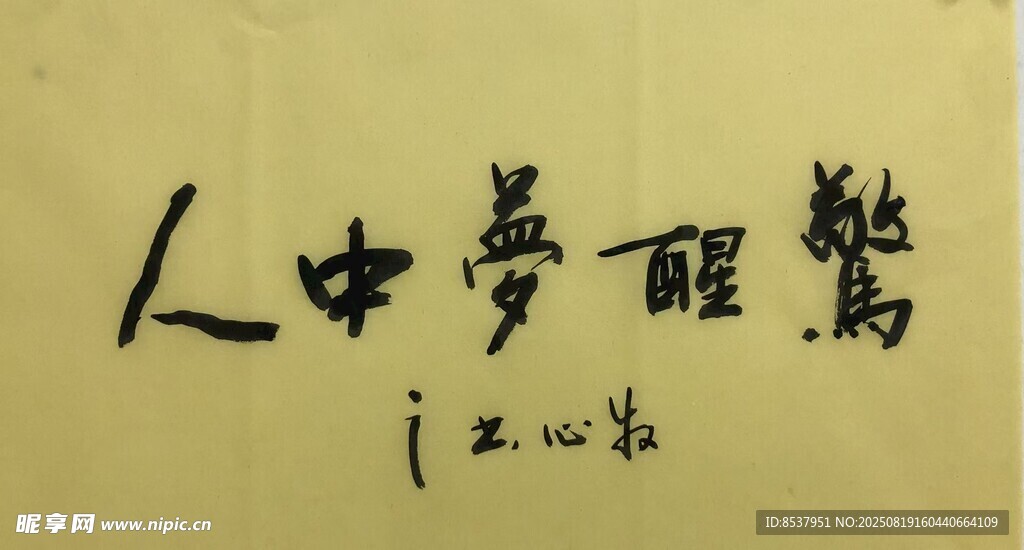 驚醒夢中人
牧心书
昵享网 www.nipic.cn
ID:8537951 NO:20250819160440664109